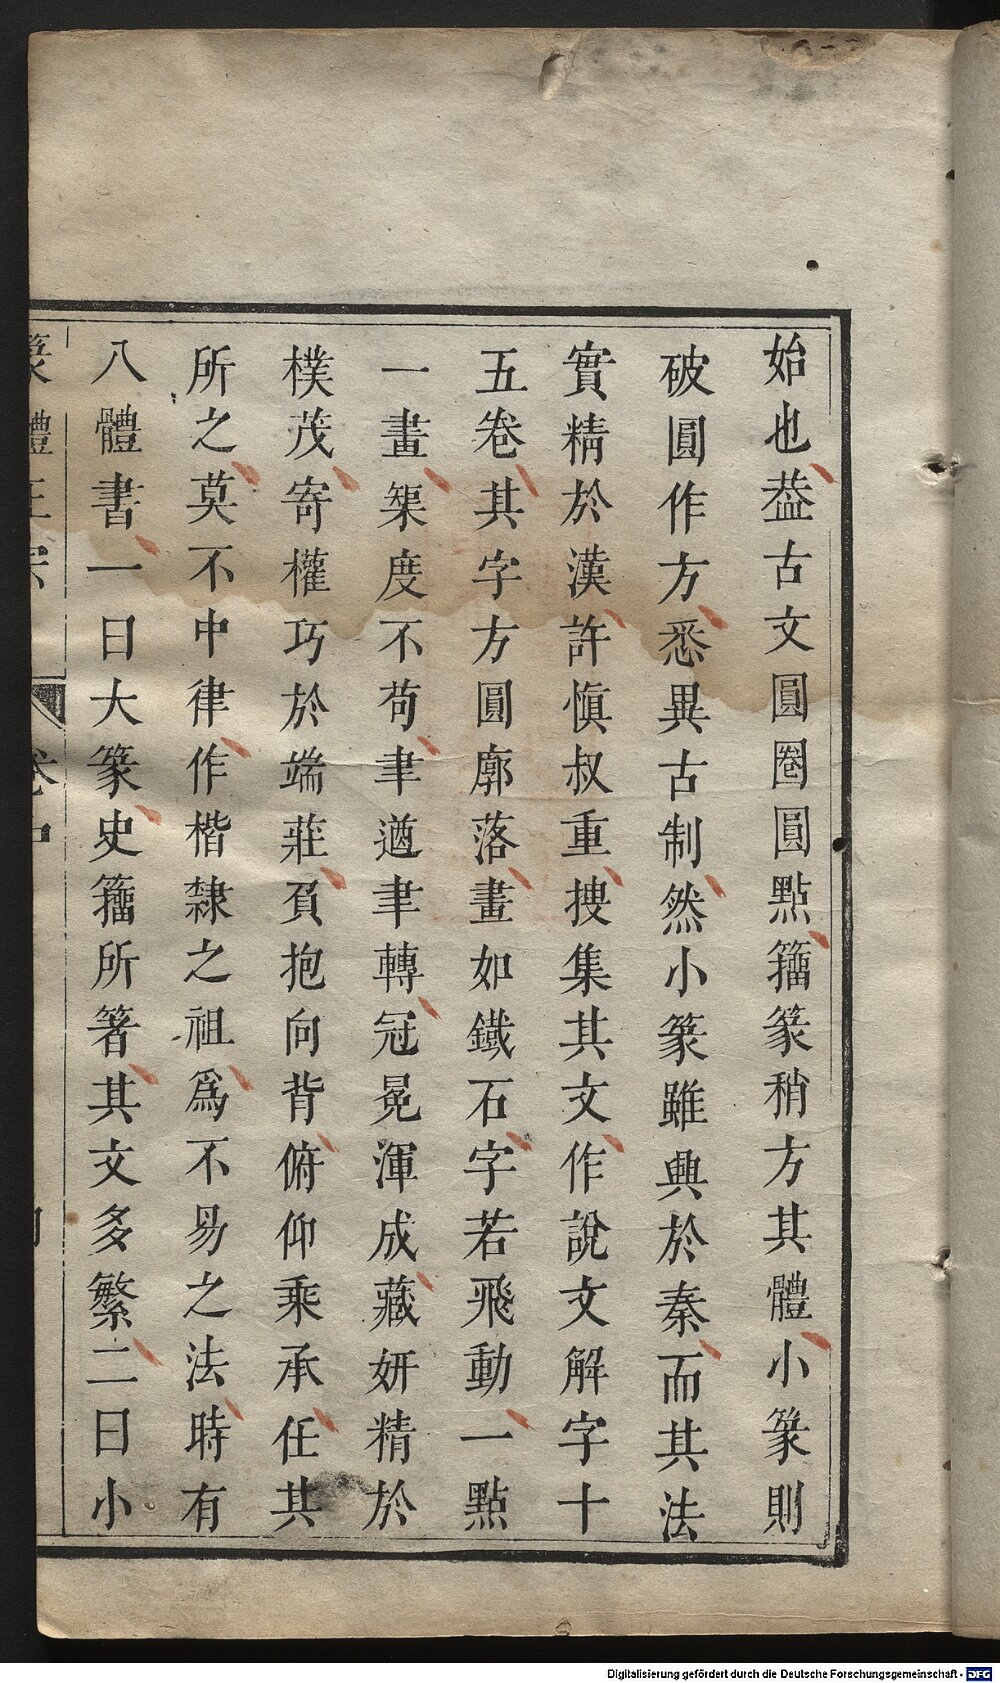 始也葢古文圓圈圓點籀篆稍方其體小篆則
破圓作方悉異古制然小篆雖興於秦而其法
實精於漢許慎叔重搜集其文作說文解字十
五卷其字方圓廓落畫如鐵石字若飛動一點
一畫榘度不茍聿遒聿轉冠冕渾成藏妍精於
樸茂寄權巧於端莊負抱向背俯仰乘承任其
所之莫不中律作楷隸之祖爲不易之法時有
八體書一曰大篆史籀所箸其文多繁二曰小
篆體正宗 卷中 四
Digitalisierung gefördert durch die Deutsche Forschungsgemeinschaft - DFG